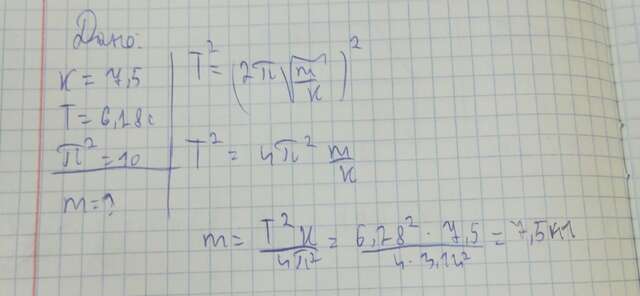 Дано:
K = 7,5
T = 6,28 с
π² = 10
m = ?
T² = (2π√(m/K))²
T² = 4π² m/K
m = T²K/4π² = 6,28² · 7,5/4 · 3,14² = 7,5 кг